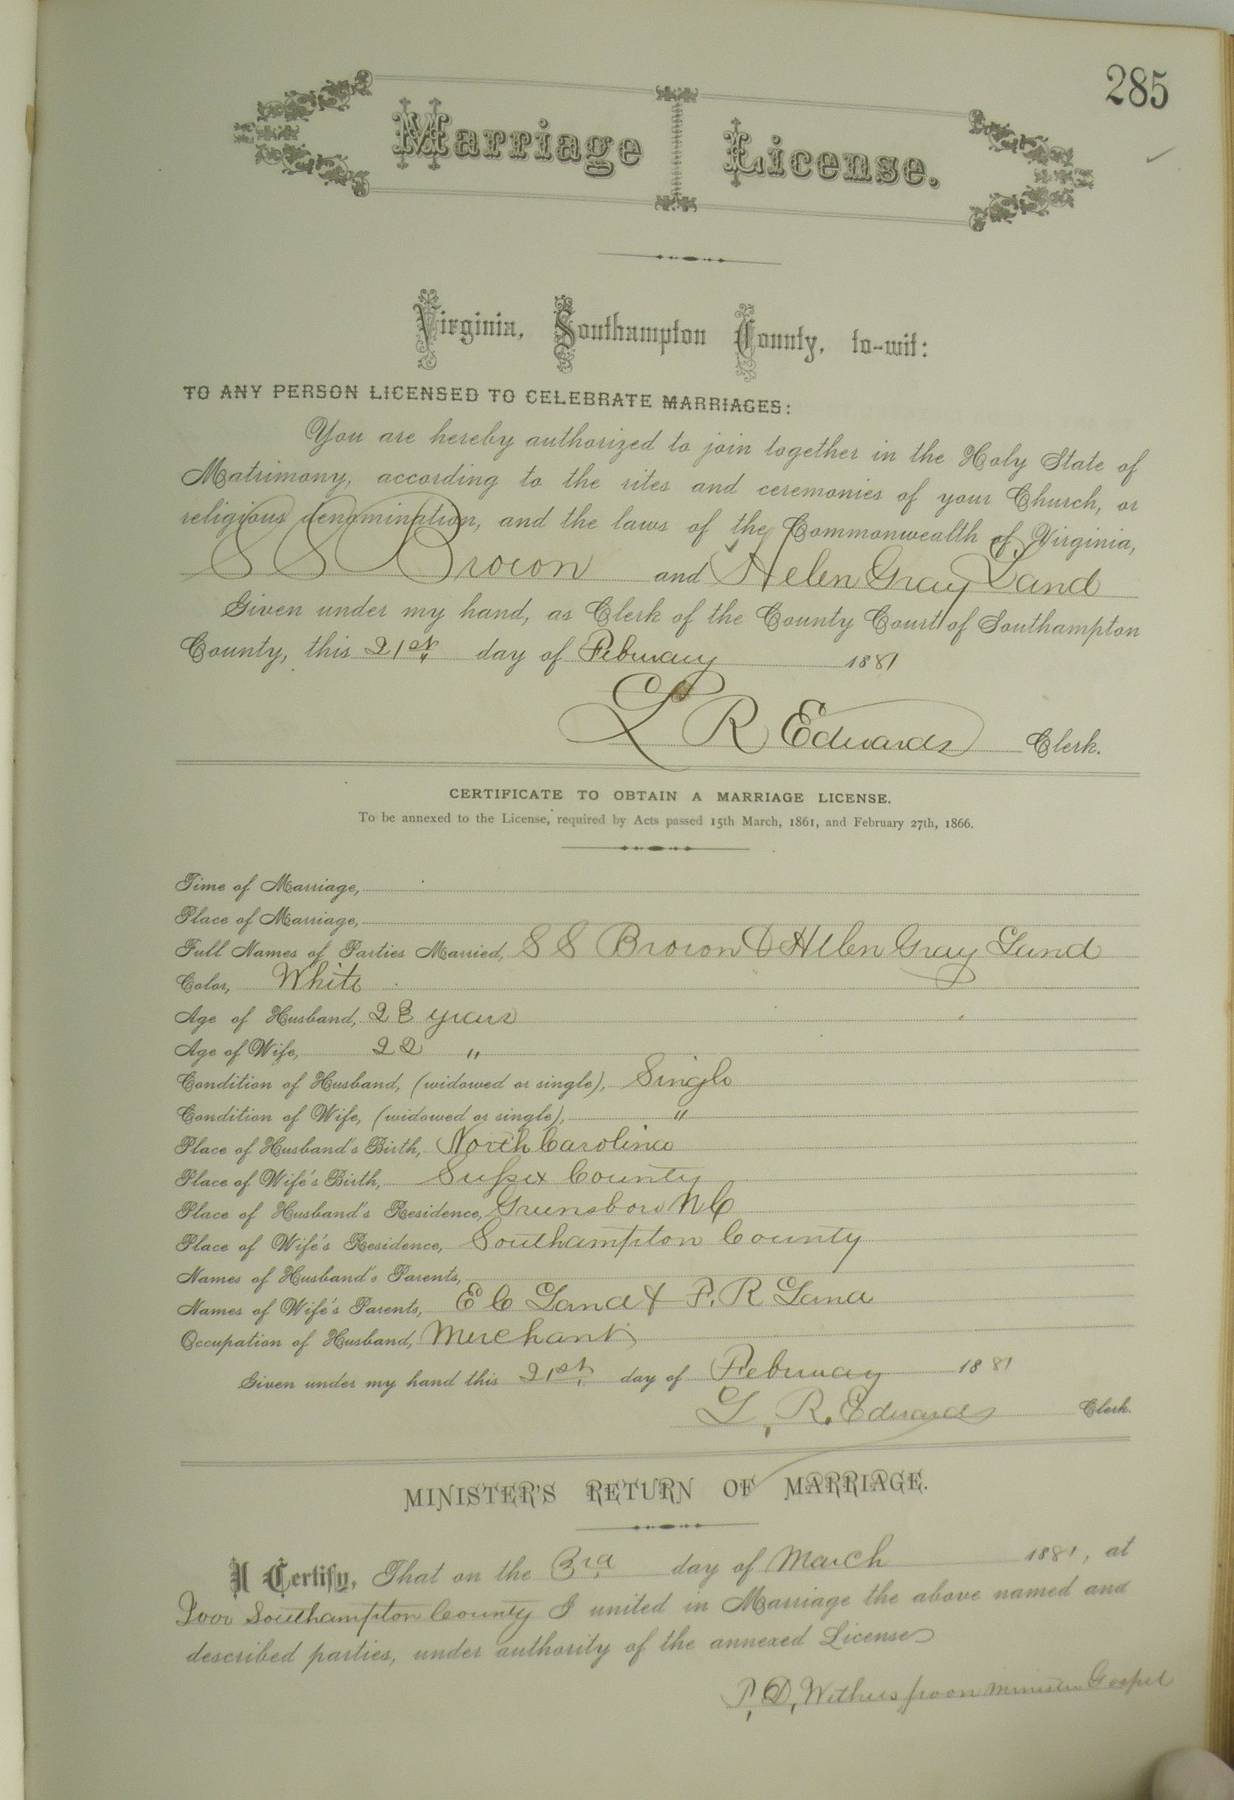 285
Marriage License.
Virginia, Southampton County, to-wit:
TO ANY PERSON LICENSED TO CELEBRATE MARRIAGES:
You are hereby authorized to join together in the Holy State of
Matrimony, according to the rites and ceremonies of your Church, or
religious denomination, and the laws of the Commonwealth of Virginia,
S S Brown and Helen Gray Land
Given under my hand, as Clerk of the County Court of Southampton
County, this 21st day of February 1881
L R Edwards Clerk.
CERTIFICATE TO OBTAIN A MARRIAGE LICENSE.
To be annexed to the License, required by Acts passed 15th March, 1861, and February 27th, 1866.
Time of Marriage,
Place of Marriage,
Full Names of Parties Married, S S Brown & Helen Gray Land
Color, White
Age of Husband, 28 years
Age of Wife, 22 "
Condition of Husband, (widowed or single), Single
Condition of Wife, (widowed or single), "
Place of Husband's Birth, North Carolina
Place of Wife's Birth, Sussex County
Place of Husband's Residence, Greensboro N C
Place of Wife's Residence, Southampton County
Names of Husband's Parents,
Names of Wife's Parents, E C Land & P. R Land
Occupation of Husband, Merchant
Given under my hand this 21st day of February 1881
L. R. Edwards Clerk.
MINISTER'S RETURN OF MARRIAGE.
I Certify, That on the 3rd day of March 1881, at
Ivor Southampton County I united in Marriage the above named and
described parties, under authority of the annexed License
P. D. Witherspoon Minister Gospel